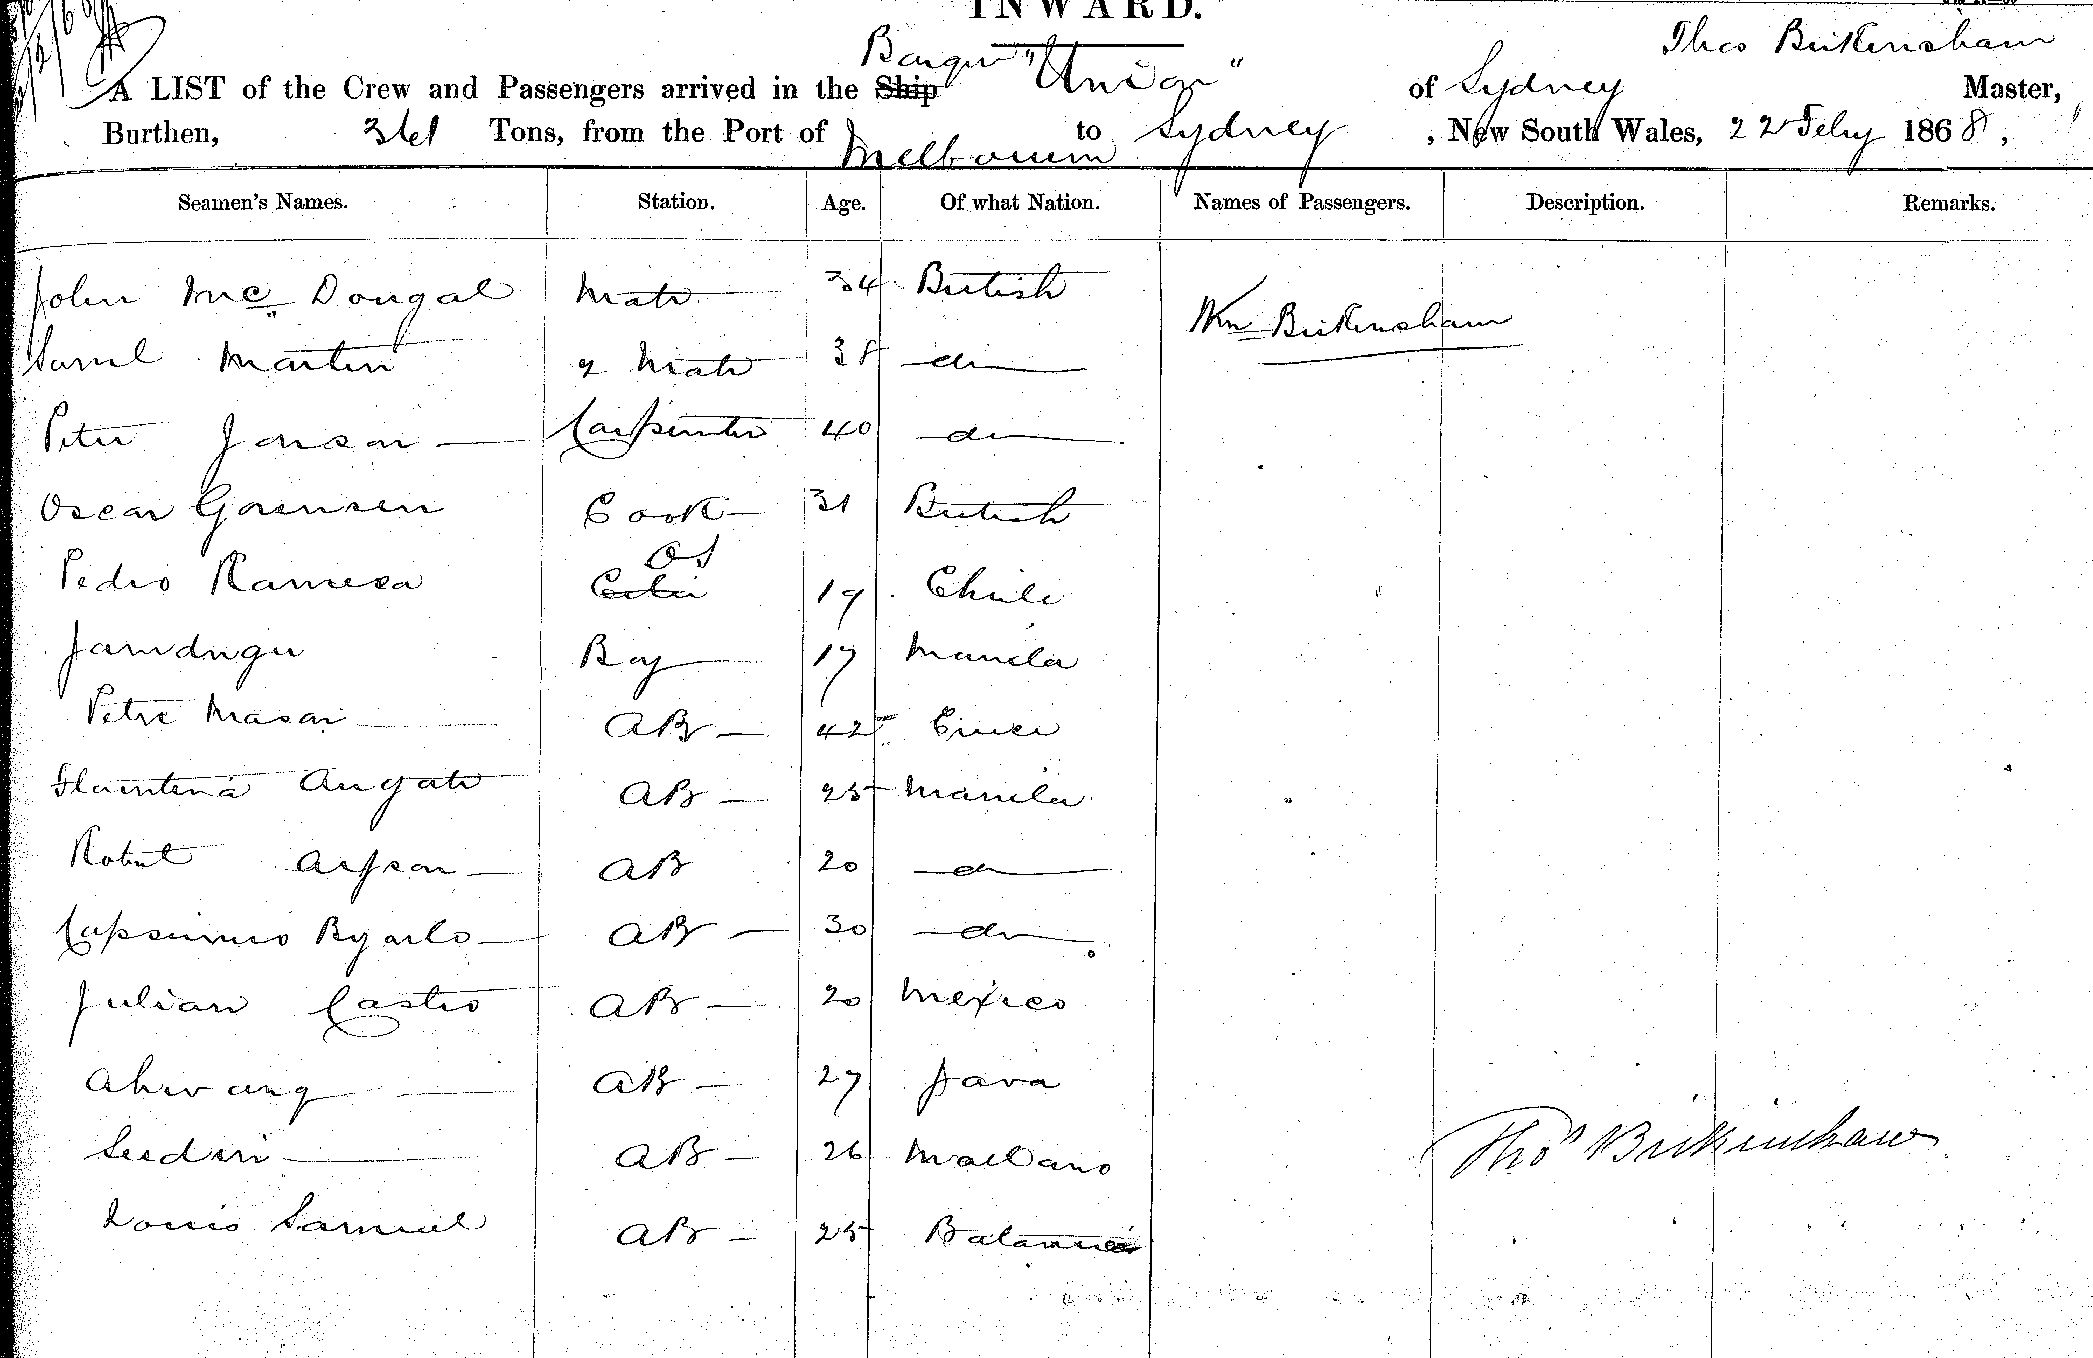 INWARD.
Barque "Union" Thos Birkensham
A LIST of the Crew and Passengers arrived in the Ship of Sydney Master,
Burthen, 361 Tons, from the Port of Melbourne to Sydney, New South Wales, 22 Feby 1868,
Seamen's Names. Station. Age. Of what Nation. Names of Passengers. Description. Remarks.
John McDougal Mate 34 British
Wm Birkensham
Saml Martin 2 Mate 38 do
Peter Jonson Carpenter 40 do
Oscar Gorensen Cook 31 British
OS
Pedro Ramesa 19 Chile
Boy 17 Manila
Petre Masai AB 42
Angate AB 25 Manila
Robert AB 20 do
Byarlo AB 30 do
Julian Castro AB 20 Mexico
Ahwang AB 27 Java
AB 26
Louis Samuel AB 25
Thos Birkinshaw